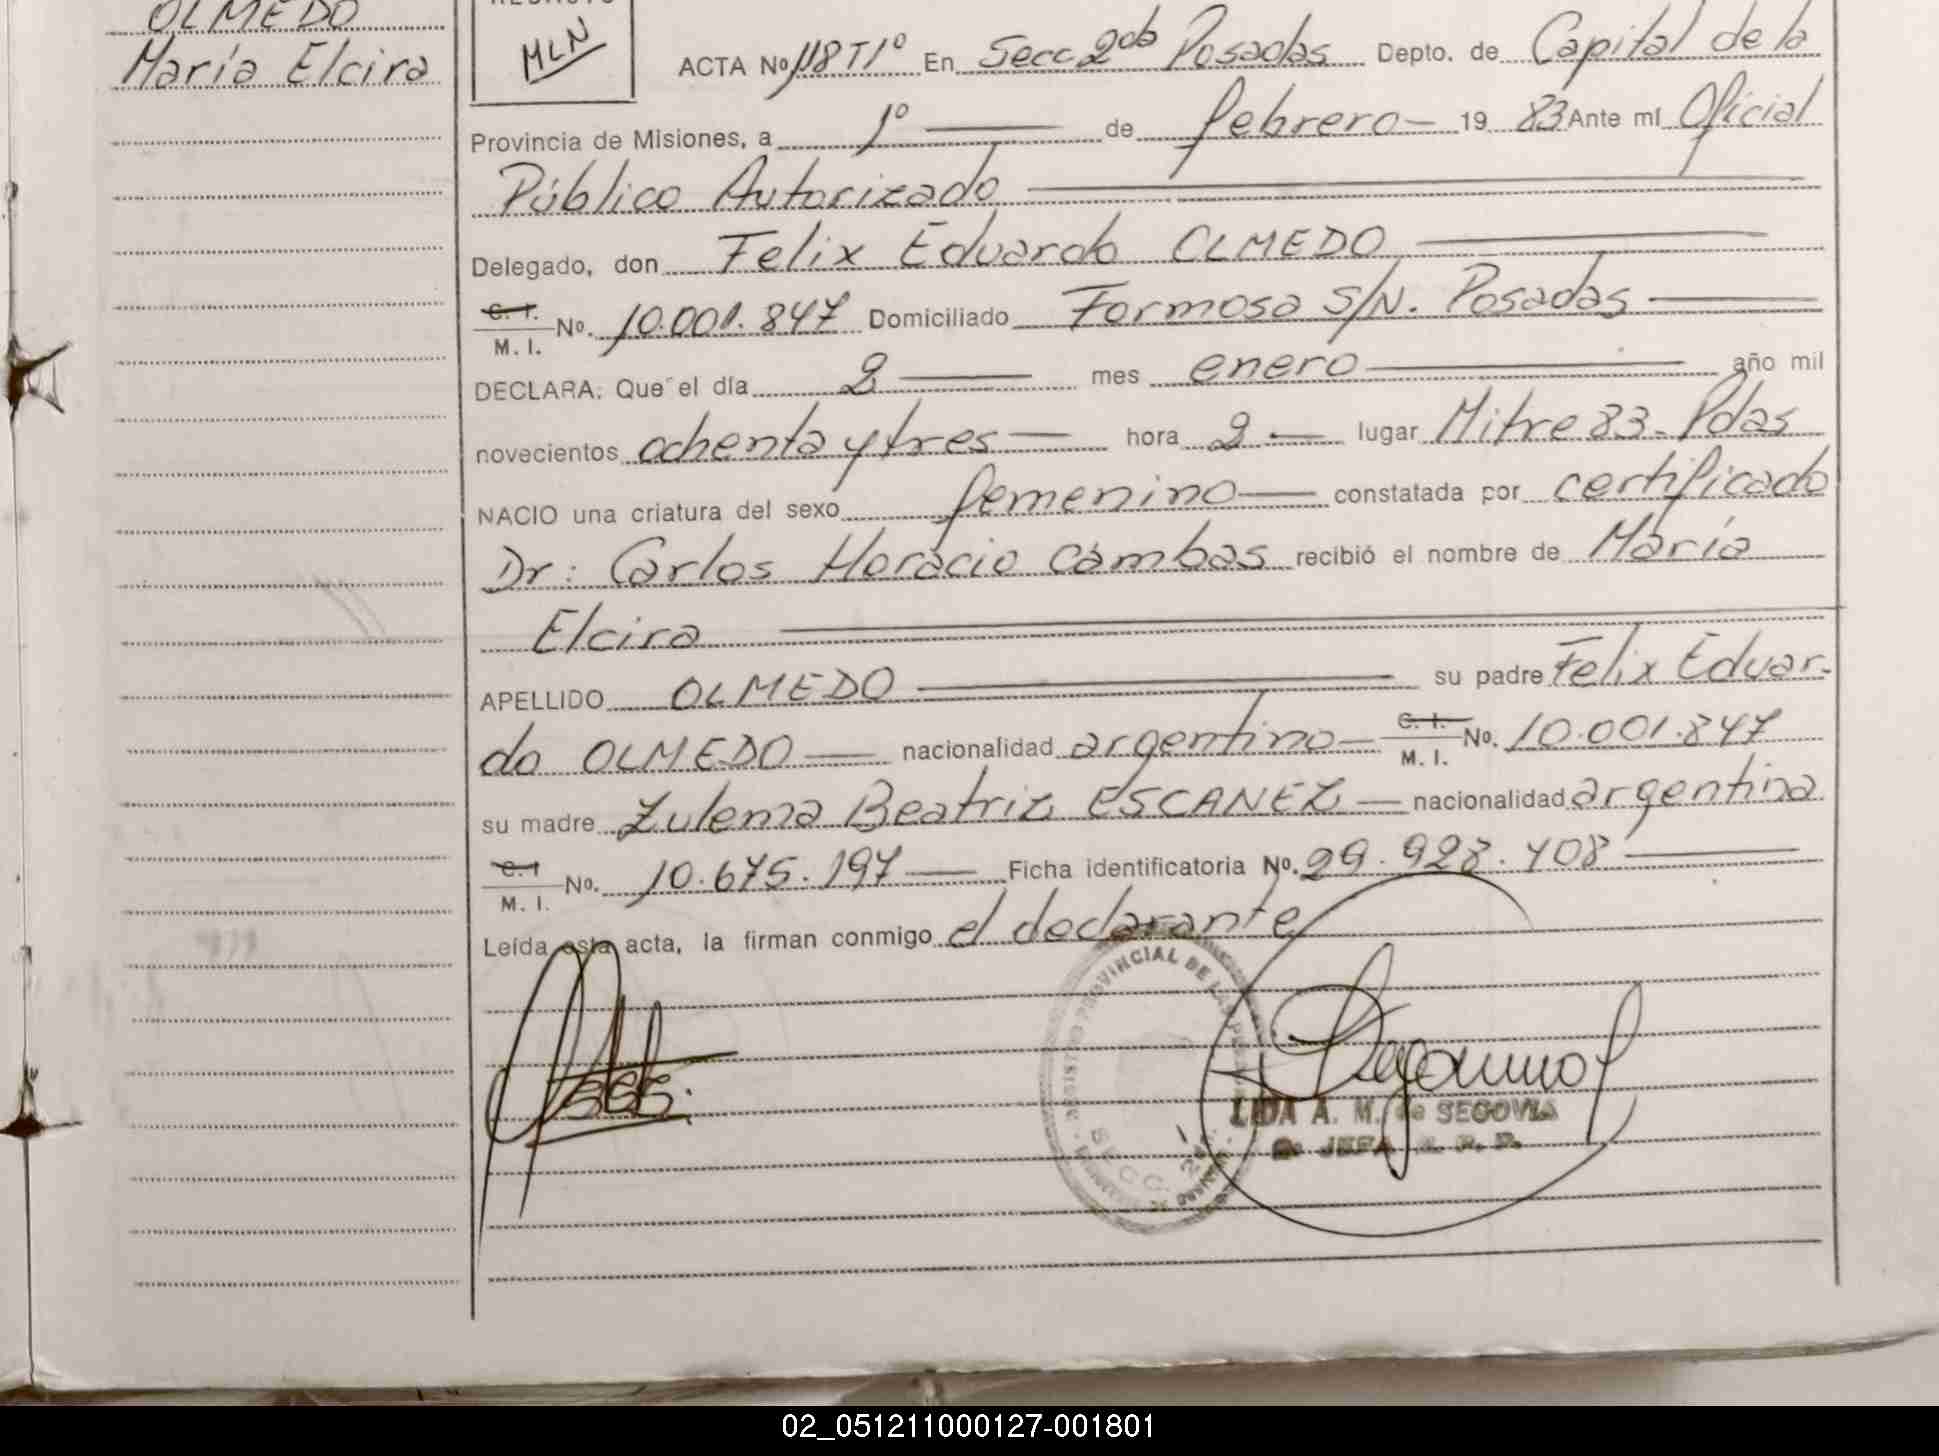 OLMEDO
María Elcira
MLN
ACTA No 118 T1º En Secc 2da Posadas Depto. de Capital de la
Provincia de Misiones, a 1º de febrero 19 83 Ante mí Oficial
Público Autorizado
Delegado, don Felix Eduardo OLMEDO
C. I.
M. I. No. 10.001.847 Domiciliado Formosa S/N. Posadas
DECLARA: Que el día 2 mes enero año mil
novecientos ochenta y tres hora 2 lugar Mitre 83 - Pdas
NACIO una criatura del sexo femenino constatada por certificado
Dr: Carlos Horacio Cambas recibió el nombre de María
Elcira
APELLIDO OLMEDO su padre Felix Eduar-
do OLMEDO nacionalidad argentino C. I. M. I. No. 10.001.847
su madre Zulema Beatriz ESCANEZ nacionalidad argentina
C. I
M. I. No. 10.675.197 Ficha identificatoria No. 29.928.708
Leída esta acta, la firman conmigo el declarante
REGISTRO PROVINCIAL DE LAS
SECC. 2da.
LIDA A. M. de SEGOVIA
JEFA
02_051211000127-001801